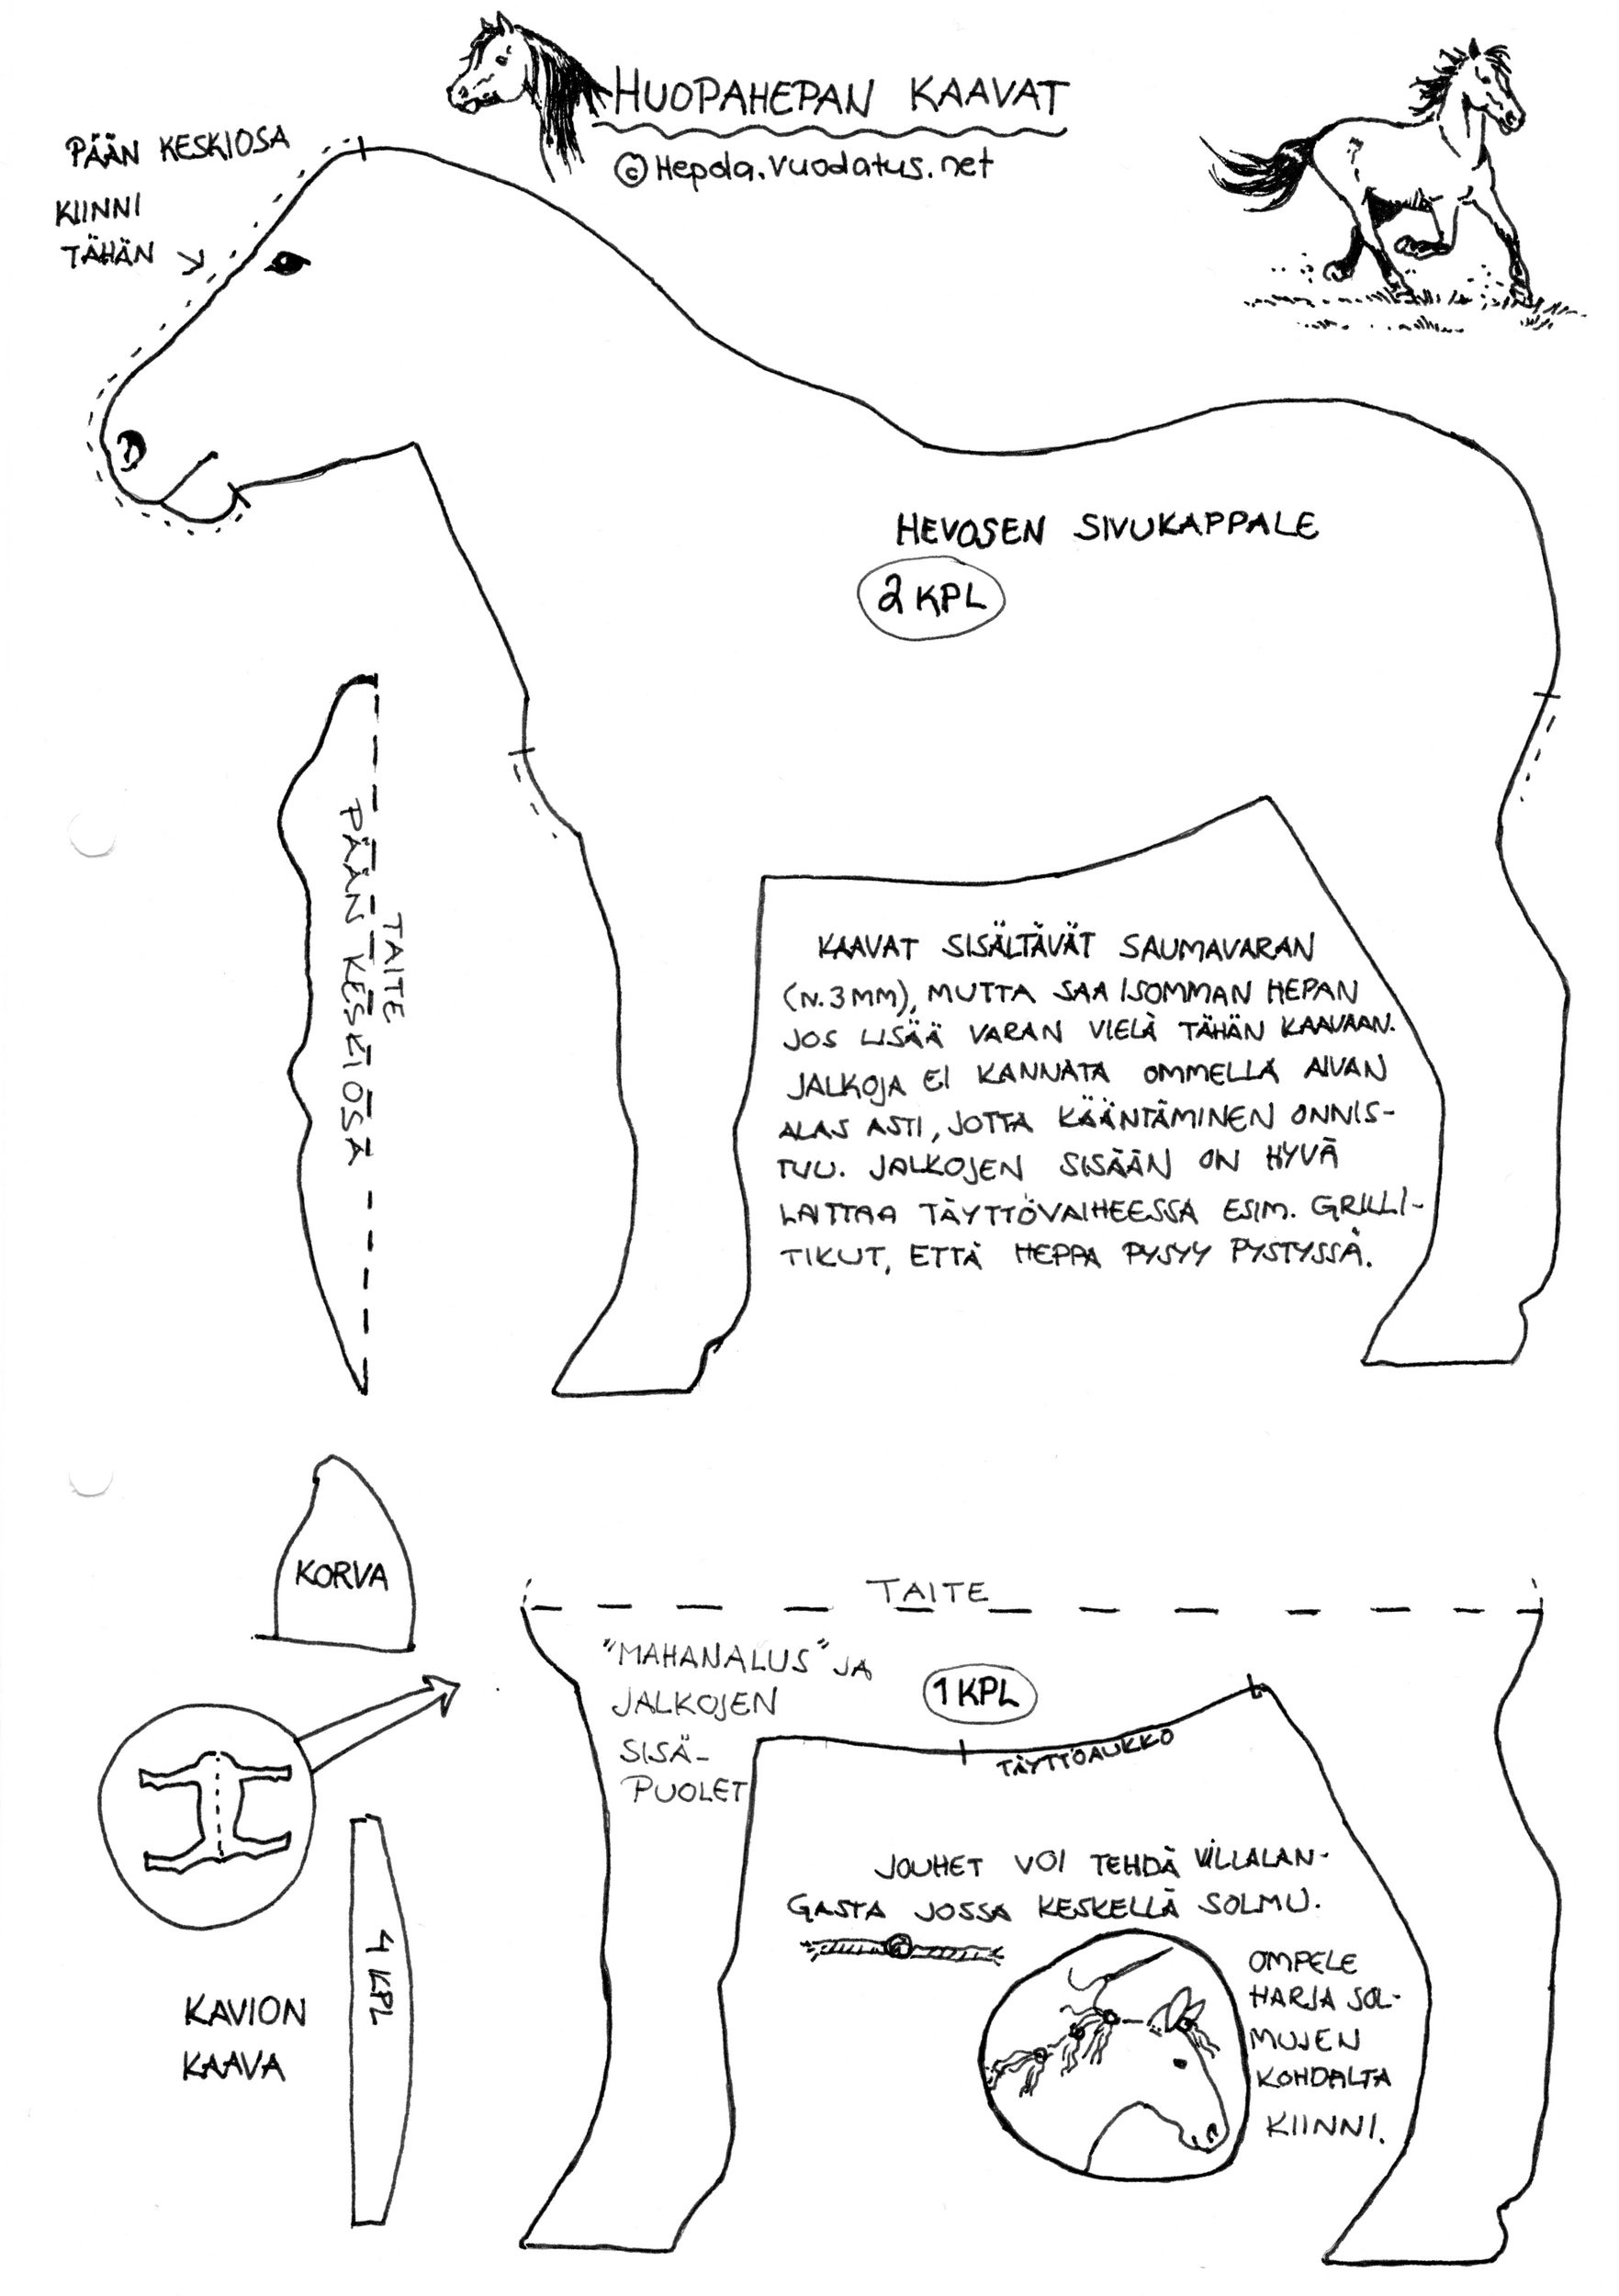 HUOPAHEPAN KAAVAT
©Hepda.vuodatus.net
PÄÄN KESKIOSA
KIINNI
TÄHÄN
HEVOSEN SIVUKAPPALE
2 KPL
TAITE
PÄÄN KESKIOSA
KAAVAT SISÄLTÄVÄT SAUMAVARAN
(N. 3 MM), MUTTA SAA ISOMMAN HEPAN
JOS LISÄÄ VARAN VIELÄ TÄHÄN KAAVAAN.
JALKOJA EI KANNATA OMMELLA AIVAN
ALAS ASTI, JOTTA KÄÄNTÄMINEN ONNIS-
TUU. JALKOJEN SISÄÄN ON HYVÄ
LAITTAA TÄYTTÖVAIHEESSA ESIM. GRILLI-
TIKUT, ETTÄ HEPPA PYSYY PYSTYSSÄ.
KORVA
TAITE
"MAHANALUS" JA
JALKOJEN
SISÄ-
PUOLET
1 KPL
TÄYTTÖAUKKO
4 KPL
KAVION
KAAVA
JOUHET VOI TEHDÄ VILLALAN-
GASTA JOSSA KESKELLÄ SOLMU.
OMPELE
HARJA SOL-
MUJEN
KOHDALTA
KIINNI.